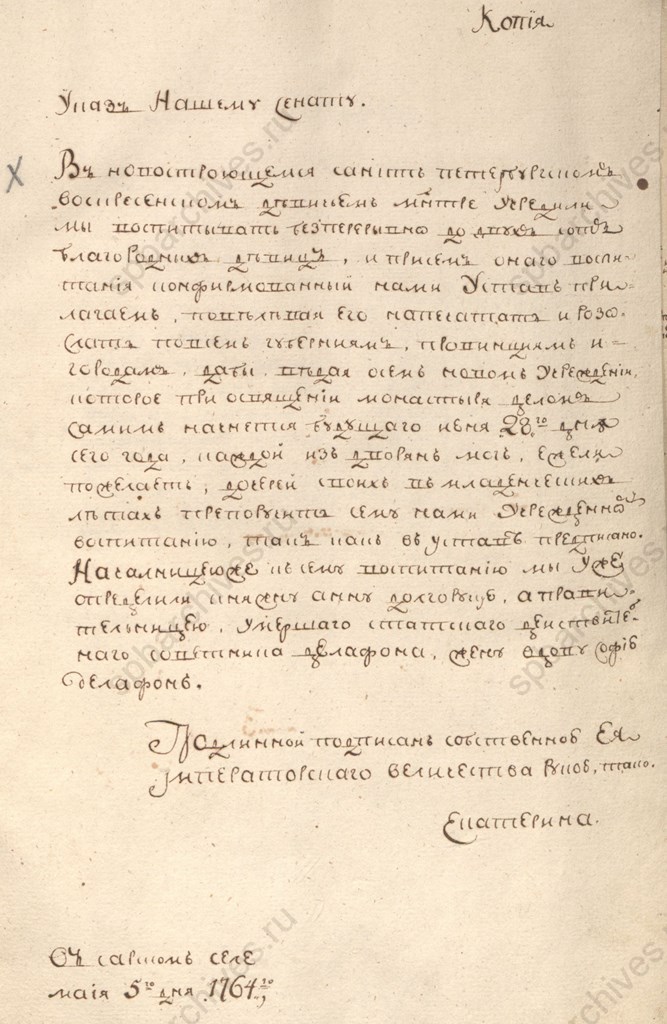 Копія
Указъ Нашему сенату.
Въ новостроющемся санктъ петербургскомъ
воскресенскомъ дѣвичьемъ мнтре Учредили
мы воспитывать безперерывно до двухъ сотъ
благородныхъ дѣвицъ, и присемъ онаго воспи
танія конфирмованный нами Уставъ при
лагаемъ, повелѣвая Его напечатать и розо
слать повсемъ губерніямъ, провинціямъ и
городамъ, дабы вѣдая осемъ новомъ Учрежденіи,
которое при освященіи монастыря деломъ
самимъ начнется будущаго июня 28го дня
сего года, каждой изъ дворянъ могъ, Ежели
пожелаетъ, дочерей своихъ въ младенческихъ
лѣтахъ препоручить сему нами Учрежденному
воспитанію, такъ какъ в уставѣ предписано.
Началницеюже к сему воспитанію мы Уже
определили княжну анну долгорукову, а прави
тельницею, Умершаго статского действите
наго советника делафона, жену вдову софію
делафонъ.
Подлинной подписанъ собственною Ея
імператорскаго величества рукою, тако.
Екатерина.
Въ сарском селе
маія 5го дня 1764го
spbarchives.ru